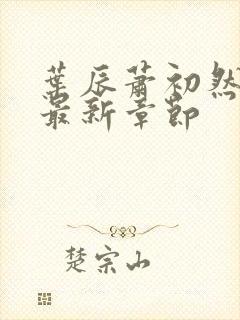 葉辰蕭初然
最新章節
楚宗山